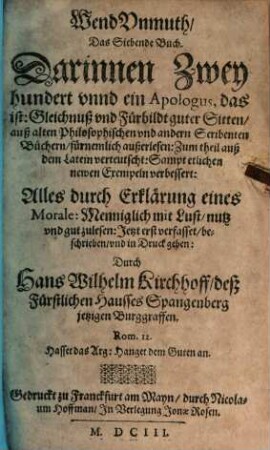 WendVnmuth/
Das Siebende Buch.
Darinnen Zwey
hundert vnnd ein Apologus, das
ist: Gleichnuß vnd Fürbildt guter Sitten/
auß alten Philosophischen vnd andern Scribenten
Büchern/ fürnemlich außerlesen: Zum theil auß
dem Latein verteutscht: Sampt etlichen
newen Exempeln verbessert:
Alles durch Erklärung eines
Morale: Menniglich mit Lust/ nutz
vnd gut zulesen: Jetzt erst verfasset/ be-
schrieben/ vnd in Druck geben:
Durch
Hans Wilhelm Kirchhoff/ deß
Fürstlichen Hausses Spangenberg
jetzigen Burggraffen.
Rom. 12.
Hasset das Arg: Hanget dem Guten an.
Gedruckt zu Franckfurt am Mayn/ durch Nicola-
um Hoffman/ In Verlegung Jonæ Rosen.
M. DCIII.